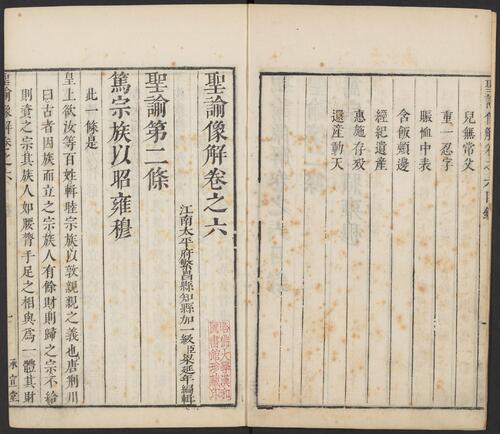 聖諭像解卷之六目錄
兒無常父
重一忍字
賑恤中表
含飯頰邊
經紀遺產
惠施存歿
還產動天
聖諭像解卷之六
江南太平府繁昌縣知縣加一級臣梁延年編輯
聖諭第二條
篤宗族以昭雍穆
此一條是
皇上欲汝等百姓輯睦宗族以敦親親之義也唐荊川
曰古者因族而立之宗族人有餘財則歸之宗不給
則資之宗其族人如腰膂手足之相與爲一體其財
聖諭像解卷之六
一
承宣堂
哈佛大學漢和
圖書館珍藏印